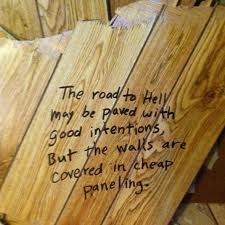 The road to Hell
may be paved with
good intentions,
But the walls are
covered in cheap
paneling.